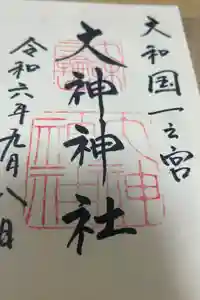 大和国一之宮
大神神社
令和六年九月八日